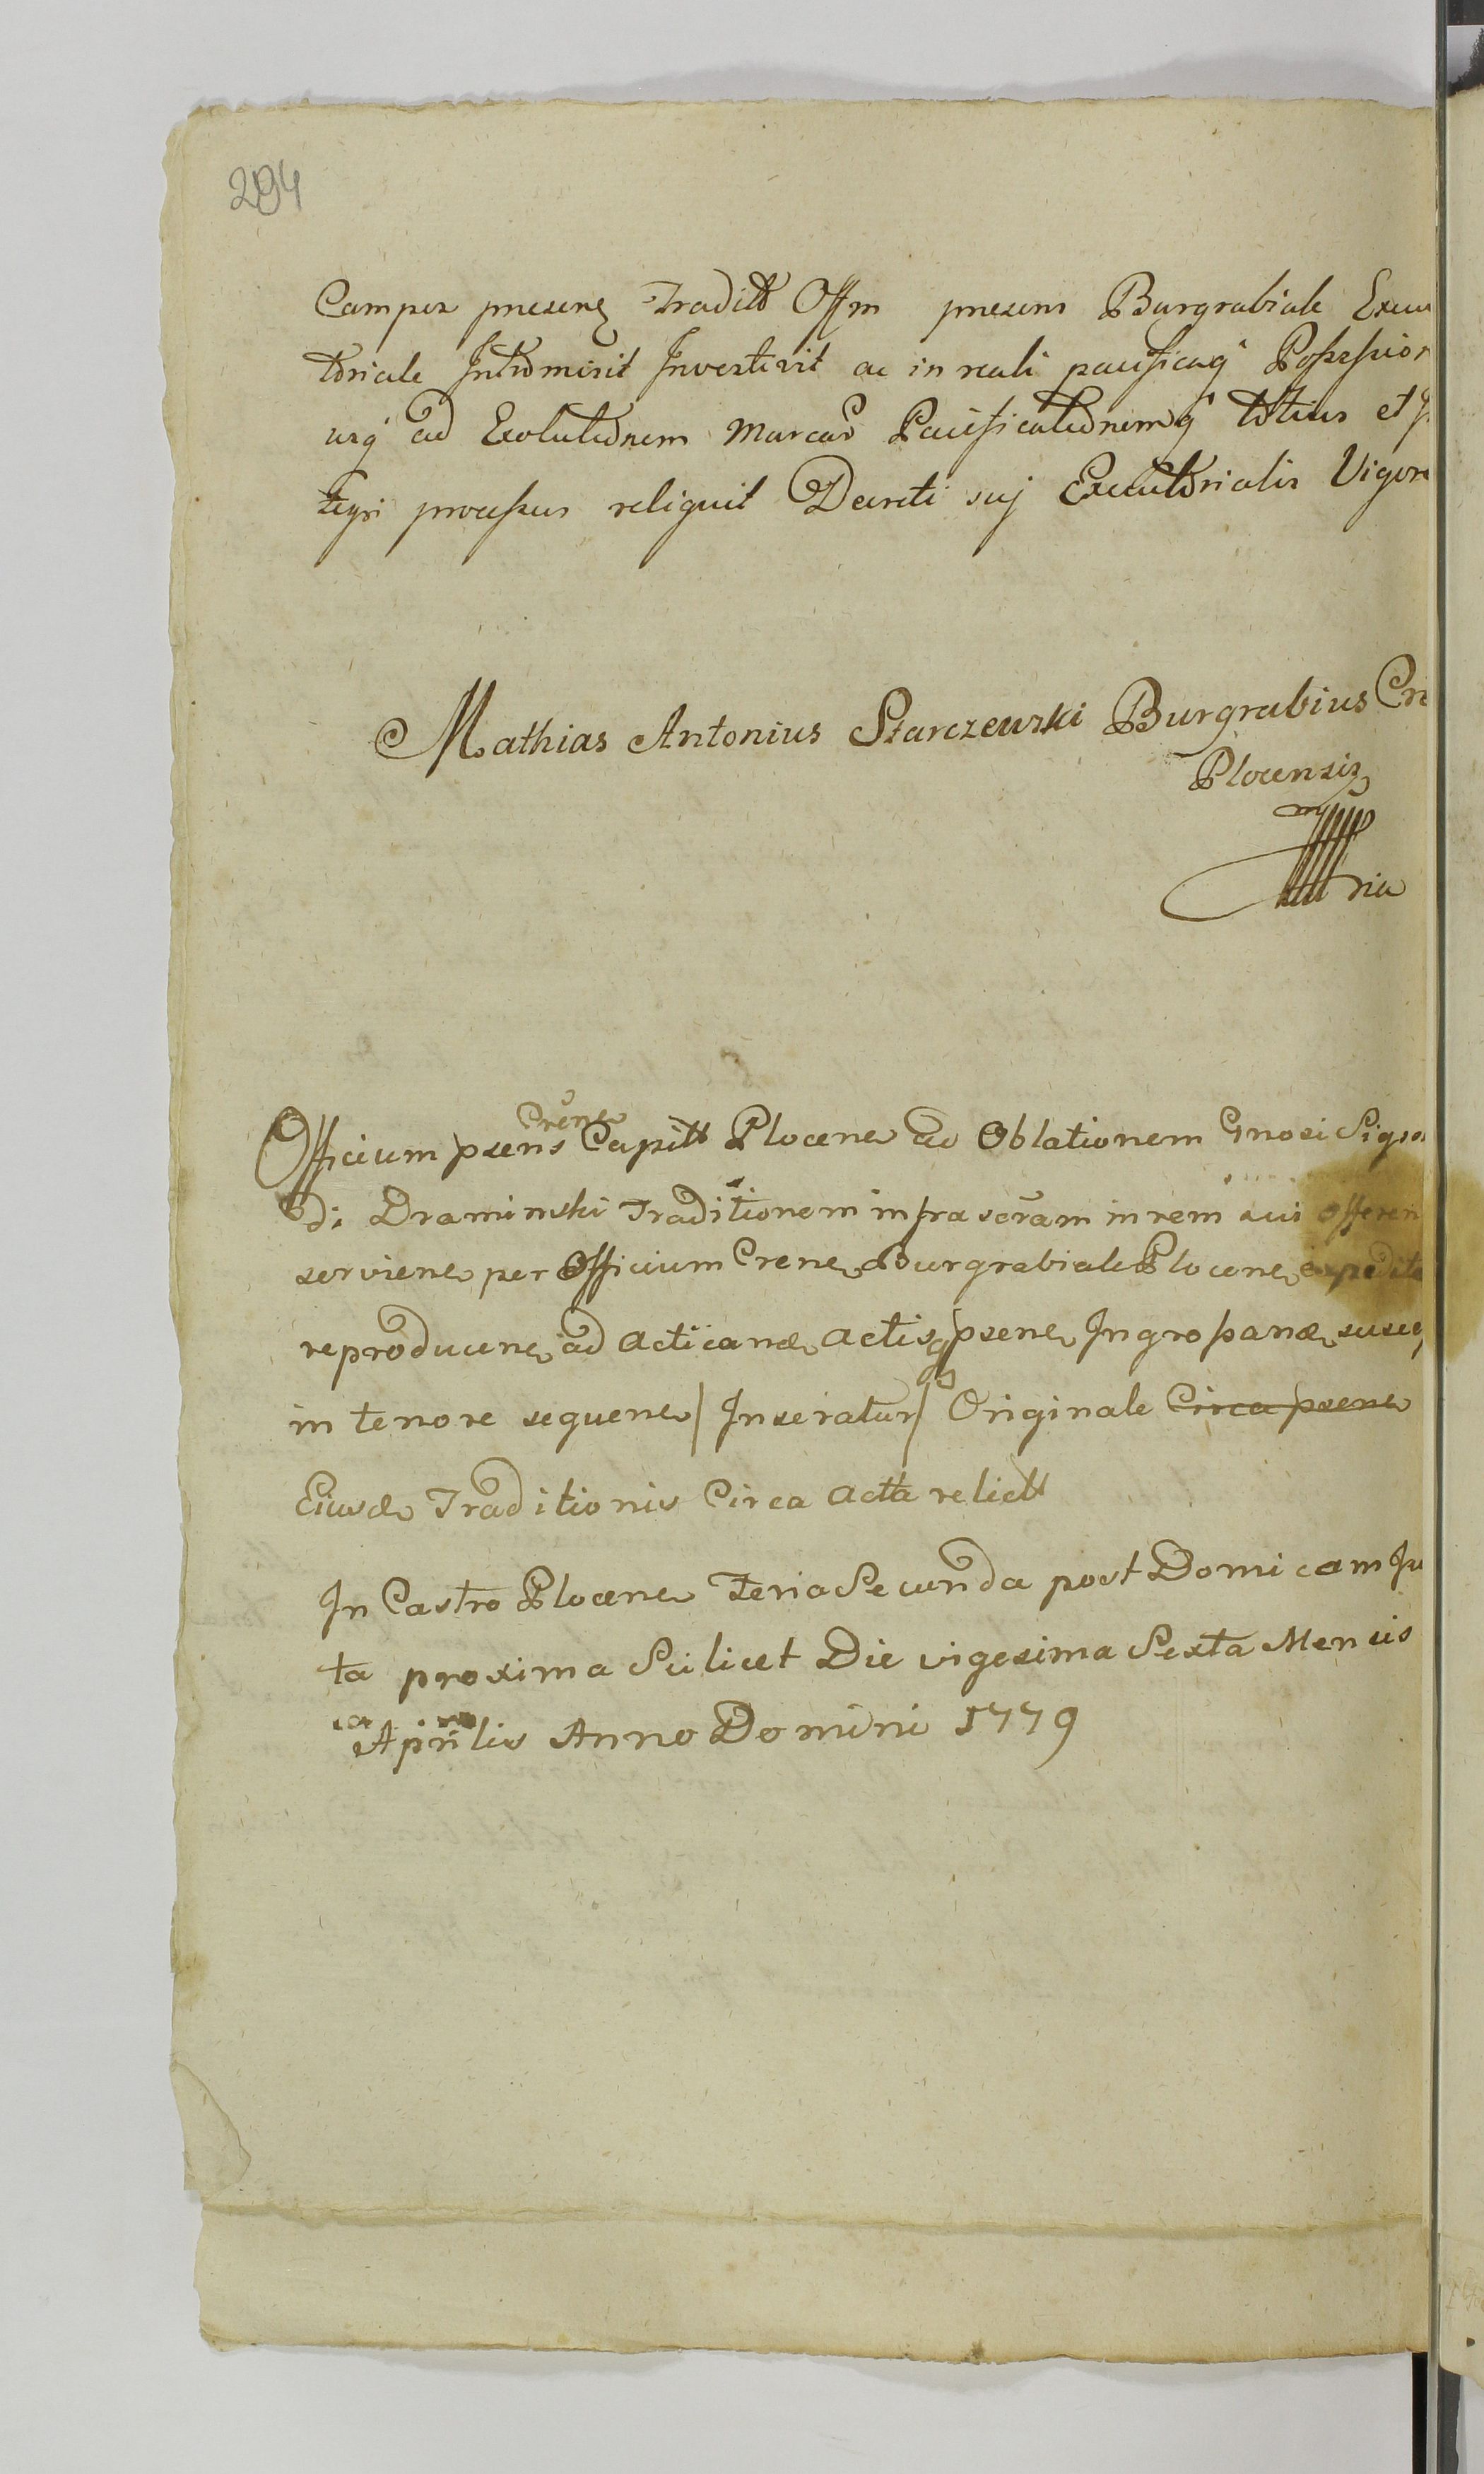 294
Campos presens Tradit Offm presens Burgrabiale Execu
toriale Intromisit Investivit ac in reali pacificaq Possession
usq ad Exolutionem Marcar Pacificationemq totius et
tegri processus reliquit Decreti suj Executorialis Vigore
Mathias Antonius Starczewski Burgrabius Cr
Plocensis
mppria
Crens
Officium psens Capitt Plocens ad Oblationem Gnosi Sigis
di Draminski Traditionem infra scram in rem sui offeren
serviens per Officium Crens Burgrabiale Plocens expedit
reproducens ad acticand actisq psens Ingrossand suscep
in tenore sequens / Inseratur / Originale Circa psens
Eiusd Traditionis Circa Acta relictt
In Castro Plocens Feria Secunda post Domicam Ju
ta proxima Scilicet Die vigesima Sexta Mensis
Aprilis Anno Domini 1779